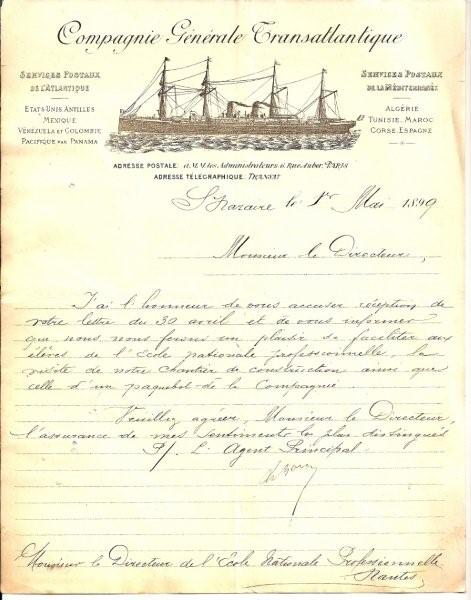 Compagnie Générale Transatlantique
SERVICES POSTAUX
DE L'ATLANTIQUE
ETATS-UNIS. ANTILLES
MEXIQUE
VÉNÉZUELA ET COLOMBIE
PACIFIQUE PAR PANAMA
SERVICES POSTAUX
DE LA MÉDITERRANÉE
ALGÉRIE
TUNISIE. MAROC
CORSE. ESPAGNE
ADRESSE POSTALE: à M.M. les Administrateurs 6. Rue Auber. PARIS
ADRESSE TÉLÉGRAPHIQUE: TRANSAT
St Nazaire le 1er Mai 1899
Monsieur le Directeur,
J'ai l'honneur de vous accuser réception de
votre lettre du 30 avril et de vous informer
que nous nous ferons un plaisir de faciliter aux
élèves de l'École nationale professionnelle, la
visite de notre chantier de construction ainsi que
celle d'un paquebot de la Compagnie.
Veuillez agréer, Monsieur le Directeur,
l'assurance de mes sentiments les plus distingués
P/. L'Agent Principal
Monsieur le Directeur de l'École Nationale Professionnelle
Nantes